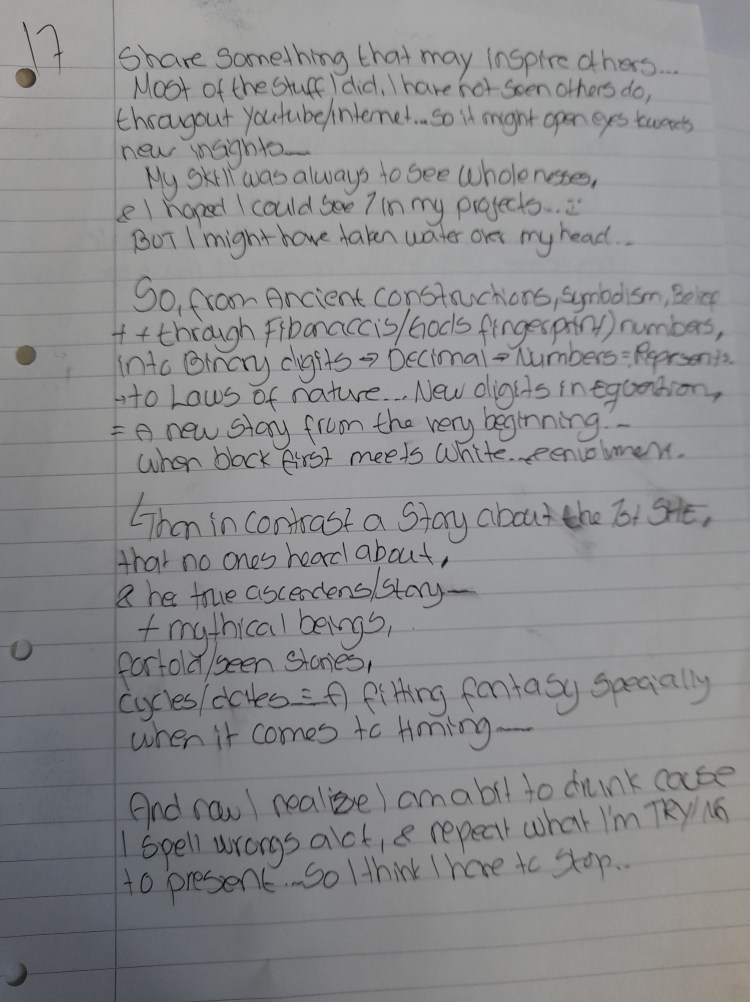 17
Share something that may inspire others...
Most of the stuff I did, I have not seen others do,
througout youtube/internet...so it might open eyes towards
new insights—
My skill was always to see wholenesses,
& I hoped I could see 7 in my projects...
BUT I might have taken water over my head...
So, from Ancient constructions, symbolism, Belief
++through Fibonaccis/Gods fingerprint) numbers,
into Binary digits → Decimal → Numbers = Represents
→to Laws of nature... New digits in Equation,
= A new story from the very beginning...
when black first meets white...
Then in contrast a Story about the 1st SHE,
that no ones heard about,
& her true ascendens/story—
+ mythical beings,
fortold/seen stories,
cycles/dates = A fitting fantasy specially
when it comes to timing—
And now I realize I am abit to drunk cause
I spell wrongs alot, & repeat what I'm TRYING
to present...So I think I have to stop..